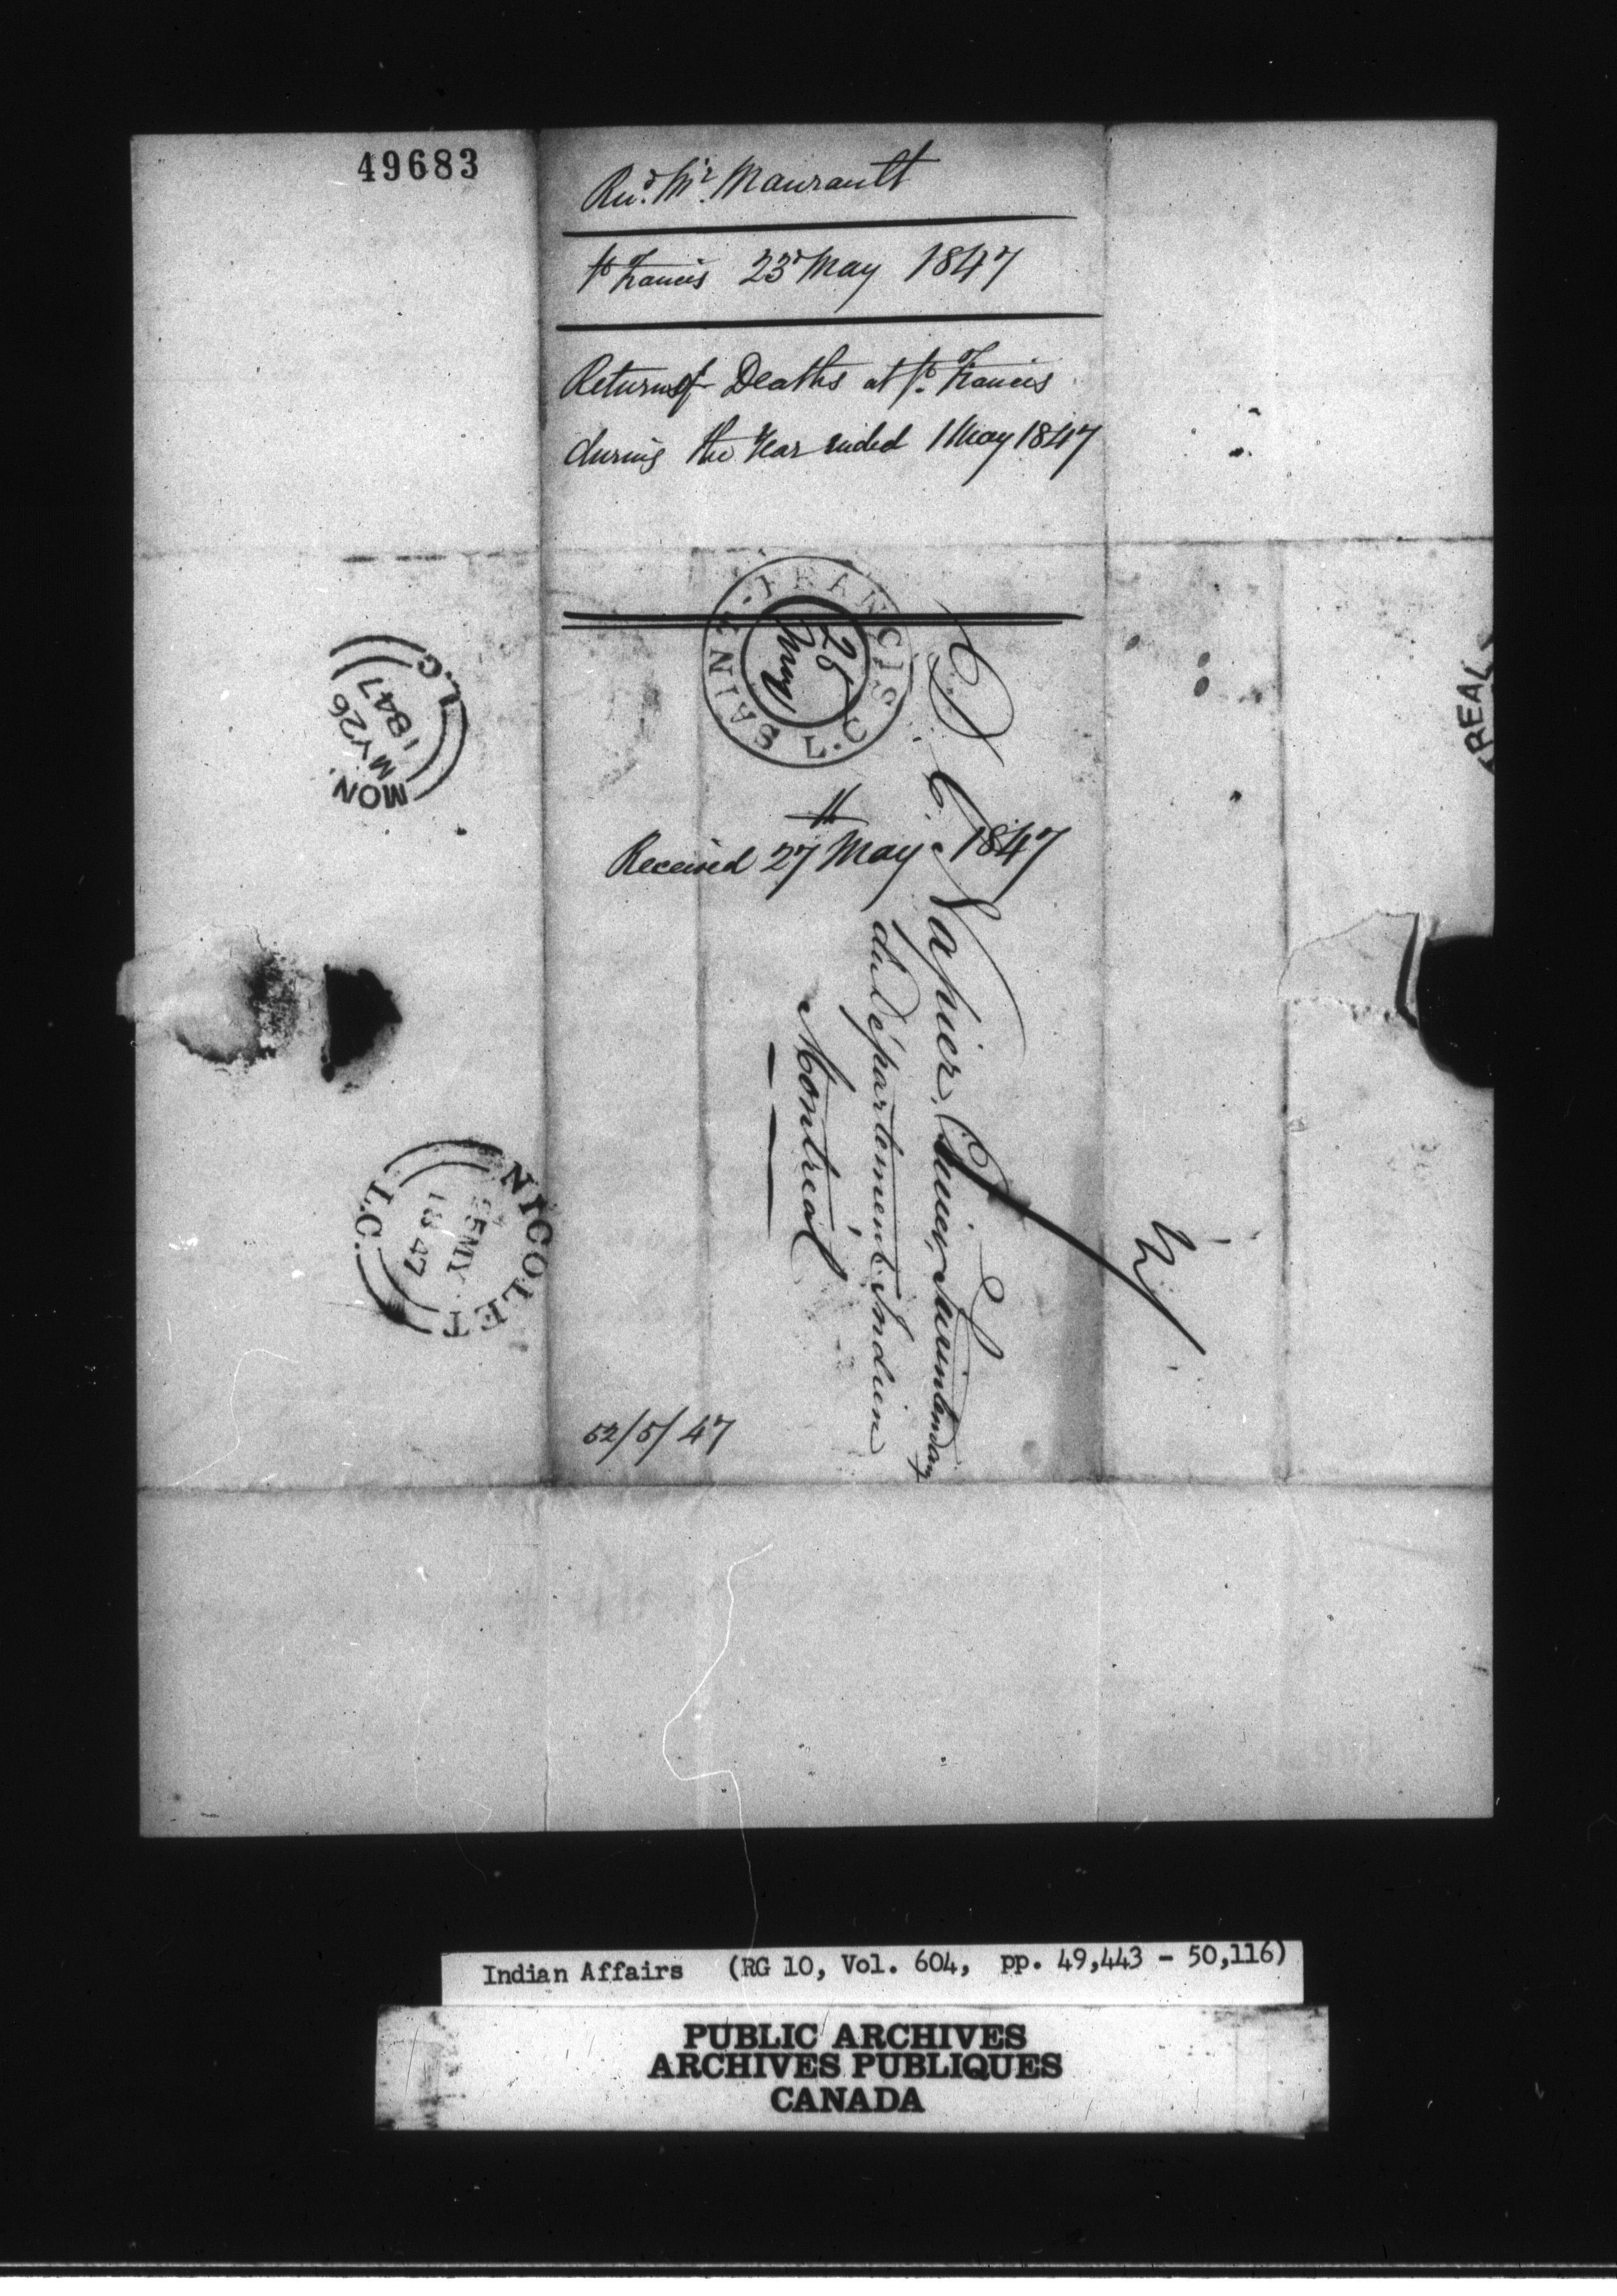 49683
Revd. Mr. Maurault
St Francis 23d May 1847
Return of Deaths at St. Francis
during the Year ended 1 May 1847
SAINT-FRANCIS L.C
25
May
MON.
MY 26
1847
L.C
REAL
Received 27 May 1847
D. C. Napier, Ecuier, Surintendant
du Département Indien
Montréal
NICOLET
25 MY
1847
L.C.
52/5/47
Indian Affairs (RG 10, Vol. 604, pp. 49,443 - 50,116)
PUBLIC ARCHIVES
ARCHIVES PUBLIQUES
CANADA